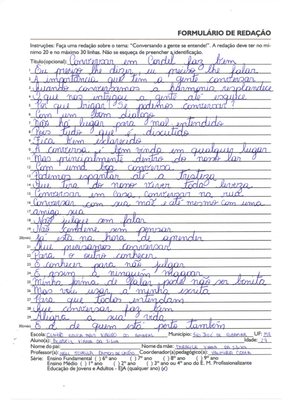 FORMULÁRIO DE REDAÇÃO
Instruções: Faça uma redação sobre o tema: "Conversando a gente se entende". A redação deve ter no mí-
nimo 20 e no máximo 30 linhas. Não se esqueça de preencher a identificação.
Título(opcional): Conversar em Cordel faz bem
Eu preciso lhe dizer eu preciso lhe falar
A importância que tem a gente conversar
Quando conversamos a harmonia resplandece
O que nos entristece a gente até esquece
Por que brigar? Se podemos conversar?
Com um bom dialogo
Não há lugar para mal entendido
Pois tudo que é discutido
Fica bem esclarecido
A conversa é bem vinda em qualquer lugar
Mas principalmente dentro do nosso lar
Com uma boa conversa
Podemos espantar até a tristeza
Que tira do nosso viver toda beleza
Conversar em casa conversar na rua
Conversar com sua mãe e até mesmo com uma
amiga sua
Não julgue sem falar
Não condene sem pensar
Já está na hora de aprender
Que precisamos conversar
Para o outro conhecer
E conhecer para não julgar
E assim a ninguém magoar
Minha forma de falar pode não ser bonita
Mas vou usar a minha escrita
Para que todos entendam
Que conversar faz bem
Alegra a sua vida
E a de quem está perto também
Escola:
Aluno(a):
Idade:
Nome do pai:
Nome da mãe:
Professor(a):
Coordenador(a)pedagógico(a):
Série: Ensino Fundamental ( ) 6º ano ( ) 7º ano ( ) 8º ano ( ) 9º ano
Ensino Médio ( ) 1º ano ( ) 2º ano ( ) 3º ano ou 4º ano do E. M. Profissionalizante
Educação de Jovens e Adultos - EJA (qualquer ano)